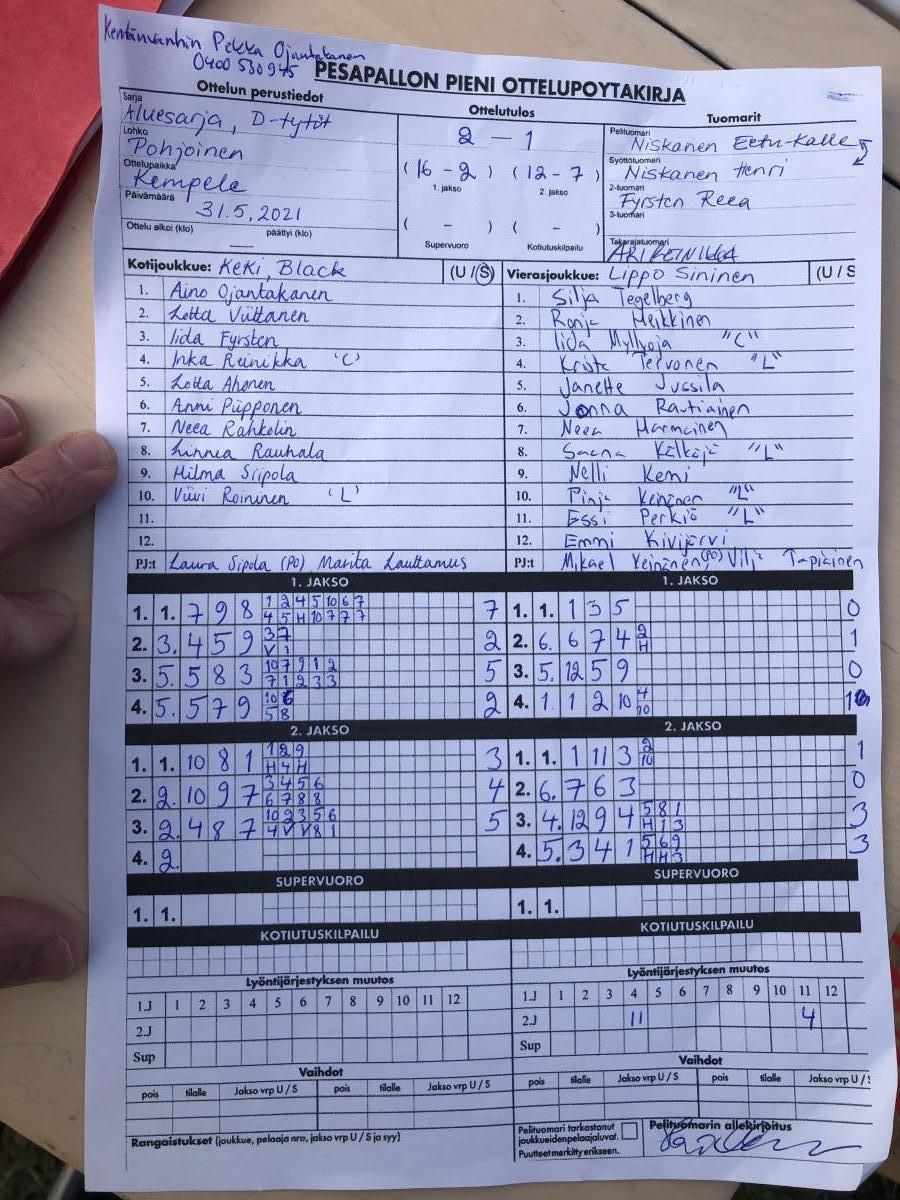 Kentänvanhin Pekka Ojantakanen
0400 530945
PESAPALLON PIENI OTTELUPOYTAKIRJA
Ottelun perustiedot
Sarja
Aluesarja, D-tytöt
Lohko
Pohjoinen
Ottelupaikka
Kempele
Päivämäärä
31.5.2021
Ottelu alkoi (klo) päättyi (klo)
Ottelutulos
2 - 1
(16 - 2) (12 - 7)
1. jakso 2. jakso
( - ) ( - )
Supervuoro Kotiutuskilpailu
Tuomarit
Pelituomari
Niskanen Eetu-Kalle
Syöttötuomari
Niskanen Henri
2-tuomari
Fyrsten Reea
3-tuomari
Takarajatuomari
ARI REINIKKA
Kotijoukkue: KeKi, Black (U / S)
1. Aino Ojantakanen
2. Lotta Viittanen
3. Iida Fyrsten
4. Inka Reinikka "C"
5. Lotta Ahonen
6. Anni Piipponen
7. Neea Rahkolin
8. Linnea Rauhala
9. Hilma Siipola
10. Viivi Roininen "L"
11.
12.
PJ:t Laura Sipola (PO), Marita Lauttamus
Vierasjoukkue: Lippo Sininen (U / S
1. Silja Tegelberg
2. Ronja Heikkinen
3. Iida Myllyoja "C"
4. Tervonen "L"
5. Janette Jussila
6. Jonna Rautiainen
7. Neea Harmainen
8. Saana "L"
9. Nelli Kemi
10. Pinja Keinänen "L"
11. Essi Perkiö "L"
12. Emmi Kivijärvi
PJ:t Mikael (PO) Vilja
1. JAKSO
1. 1. 7 9 8 1 2 4 5 10 6 7 7
4 5 H 10 7 7 7
2. 3. 4 5 9 3 7 2
V 1
3. 5. 5 8 3 10 7 9 1 2 5
7 1 2 3 3
4. 5. 5 7 9 10 6 2
5 8
2. JAKSO
1. 1. 10 8 1 1 2 9 3
H 4 H
2. 2. 10 9 7 3 4 5 6 4
6 7 8 8
3. 2. 4 8 7 10 2 3 5 6 5
4 V V 8 1
4. 2.
SUPERVUORO
1. 1.
KOTIUTUSKILPAILU
Lyöntijärjestyksen muutos
1.J 1 2 3 4 5 6 7 8 9 10 11 12
2.J
Sup
Vaihdot
pois tilalle Jakso vrp U / S pois tilalle Jakso vrp U / S
Rangaistukset (joukkue, pelaaja nro, jakso vrp U / S ja syy)
1. JAKSO
1. 1. 1 3 5 0
2. 6. 6 7 4 2 1
H
3. 5. 12 5 9 0
4. 1. 1 2 10 4 1
10
2. JAKSO
1. 1. 1 11 3 2 1
10
2. 6. 7 6 3 0
3. 4. 12 9 4 5 8 1 3
H 1 3
4. 5. 3 4 1 5 6 9 3
H H 3
SUPERVUORO
1. 1.
KOTIUTUSKILPAILU
Lyöntijärjestyksen muutos
1.J 1 2 3 4 5 6 7 8 9 10 11 12
2.J 11 4
Sup
Vaihdot
pois tilalle Jakso vrp U / S pois tilalle Jakso vrp U /
Pelituomari tarkastanut
joukkueidenpelaajaluvat.
Puutteet merkitty erikseen.
Pelituomarin allekirjoitus